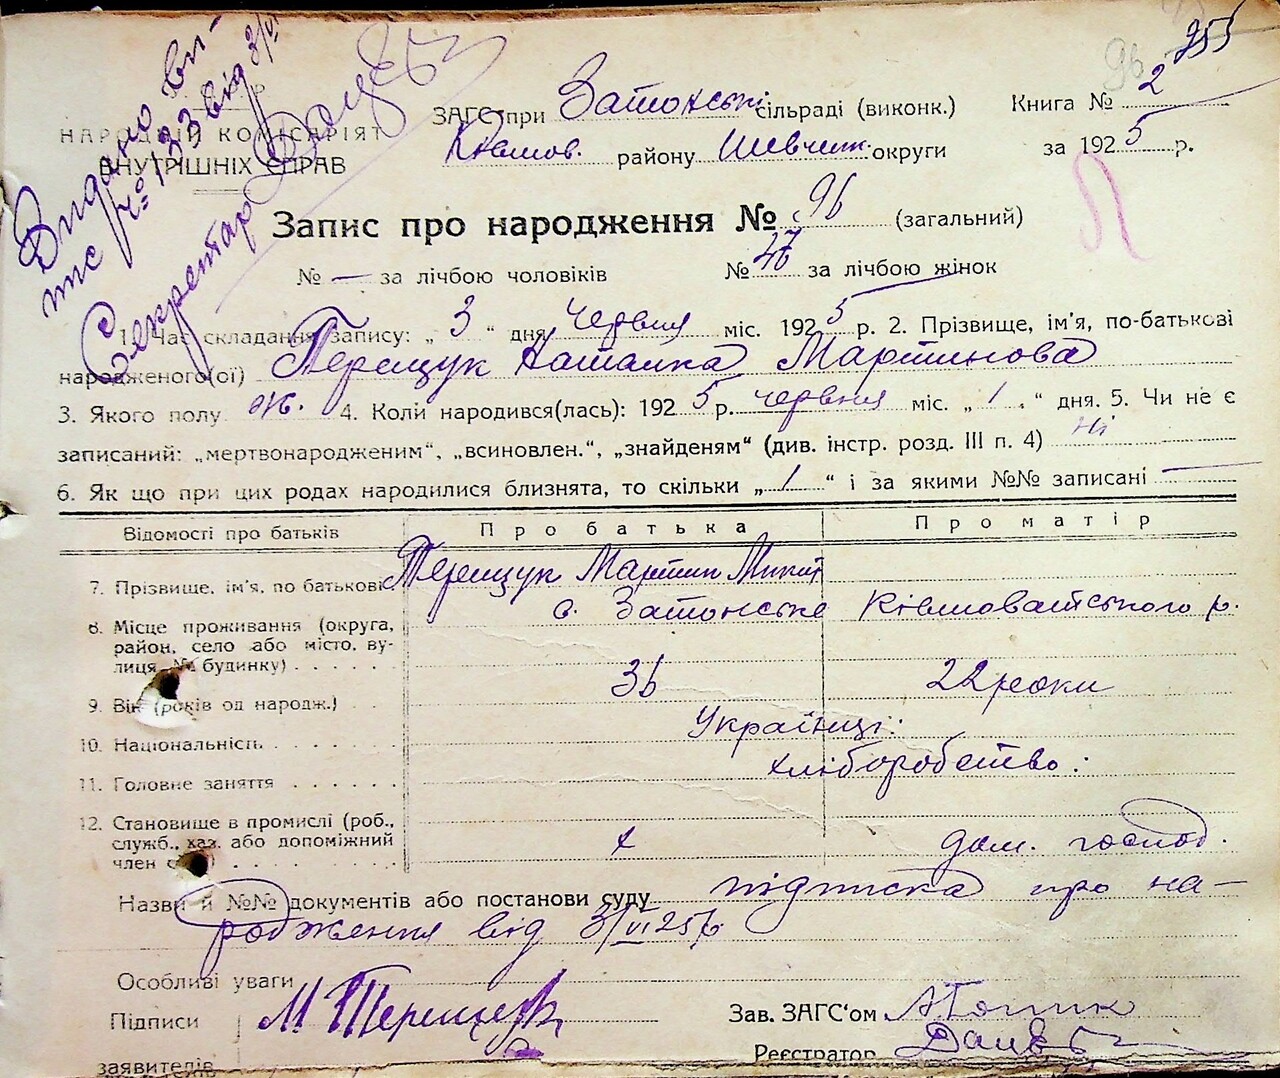 255
96
Видано ви-
пис № 133 від 3/VI
Секретар
НАРОДНІЙ КОМІСАРІЯТ
ВНУТРІШНІХ СПРАВ
ЗАГС при Затонські сільраді (виконк.) Книга № 2
району Шевчен. округи за 1925 р.
Запис про народження № 96 (загальний)
№ — за лічбою чоловіків № 47 за лічбою жінок
1. Час складання запису: „ 3 “ дня червня міс. 1925 р. 2. Прізвище, ім'я, по-батькові
народженого(ої) Терещук Наталка Мартинова
3. Якого полу ж. 4. Коли народився(лась): 1925 р. червня міс. „ 1 “ дня. 5. Чи не є
записаний: „мертвонародженим“, „всиновлен.“, „знайденям“ (див. інстр. розд. III п. 4) ні
6. Як що при цих родах народилися близнята, то скільки „ 1 “ і за якими №№ записані —
Відомості про батьків Про батька Про матір
7. Прізвище, ім'я, по батькові Терещук Мартин Микит
8. Місце проживання (округа, с. Затонське р.
район, село або місто, ву-
лиця, № будинку)
9. Вік (років од народж.) 36 22 роки
10. Національність Українці:
11. Головне заняття хліборобство:
12. Становище в промислі (роб.,
служб., хаз. або допоміжний х дом. господ.
член с
Назви й №№ документів або постанови суду підписка про на-
родження від 3/VI 25 р.
Особливі уваги
Підписи М Терещук Зав. ЗАГС'ом
заявителів Реєстратор